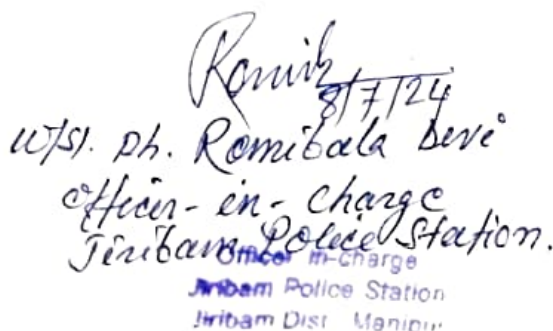 Romib
8/7/24
W/SI. Ph. Romibala Devi
Officer-in-charge
Jiribam Police Station.
Officer in-charge
Jiribam Police Station
Jiribam Dist. Manipur